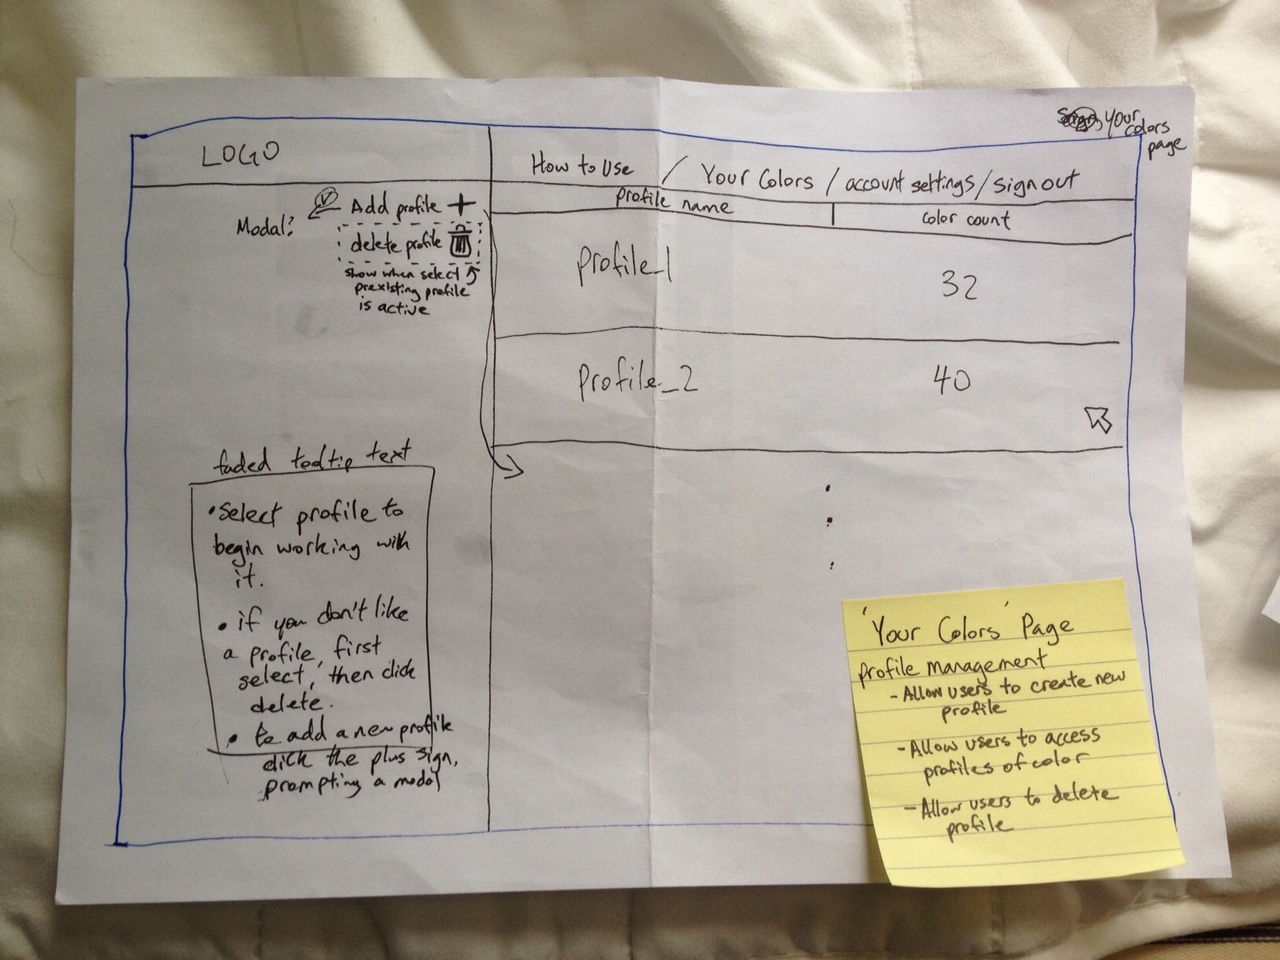 your
colors
page
LOGO
How to Use / Your Colors / account settings / sign out
Modal?
Add profile +
delete profile
show when select
prexisting profile
is active
profile name
color count
profile_1
32
profile_2
40
faded tooltip text
• Select profile to
begin working with
it.
• if you don't like
a profile, first
select, then click
delete.
• to add a new profile
click the plus sign,
prompting a modal
'Your Colors' Page
profile management
- Allow users to create new
profile
- Allow users to access
profiles of color
- Allow users to delete
profile